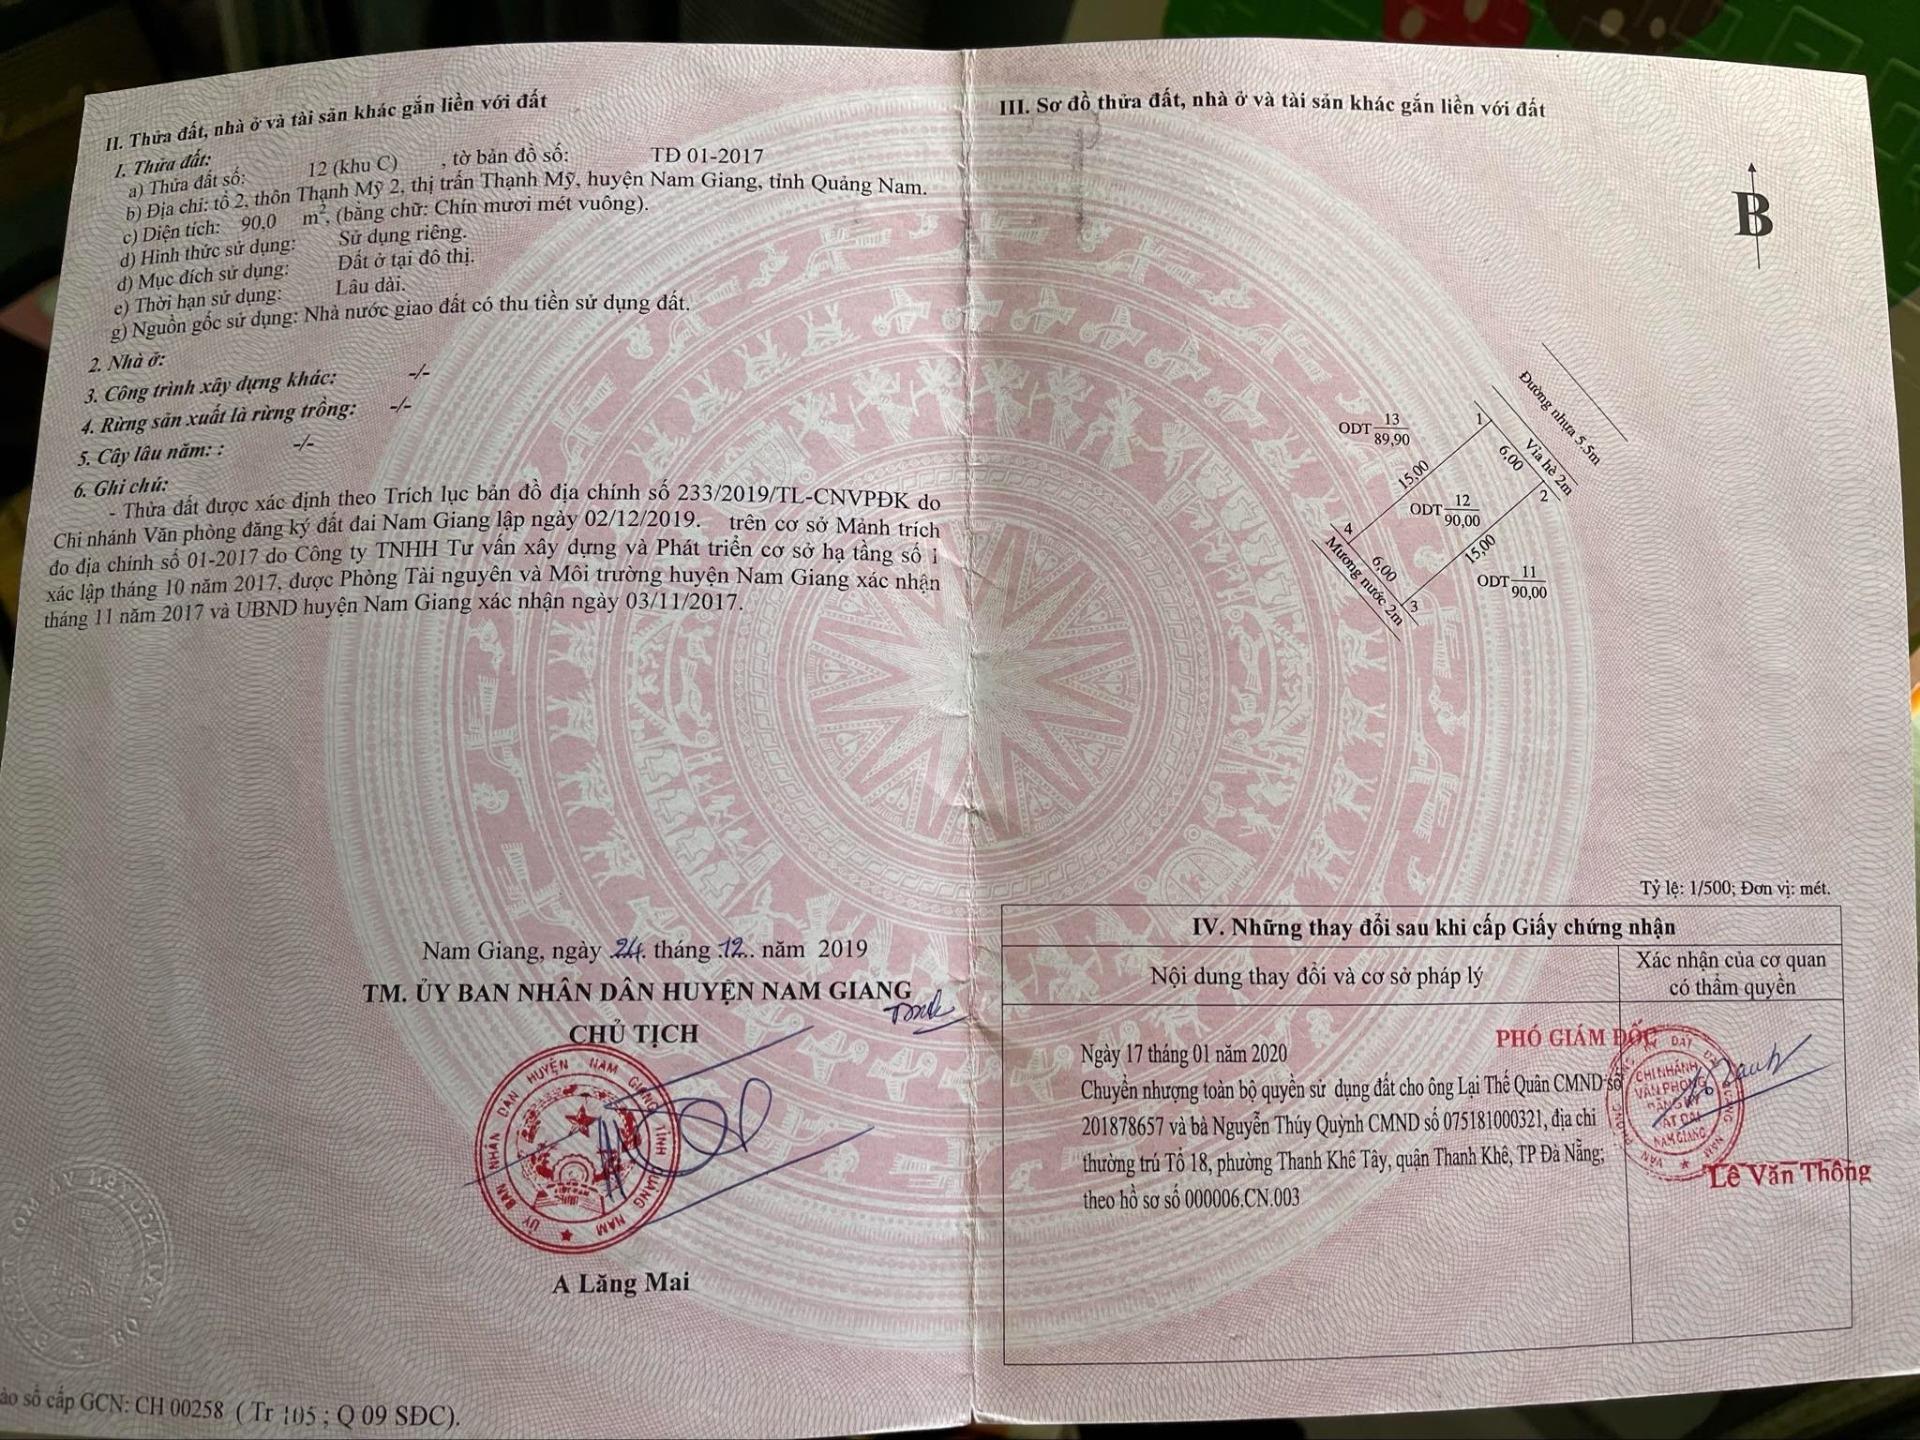 II. Thửa đất, nhà ở và tài sản khác gắn liền với đất
1. Thửa đất:
a) Thửa đất số: 12 (khu C) , tờ bản đồ số: TĐ 01-2017
b) Địa chỉ: tổ 2, thôn Thạnh Mỹ 2, thị trấn Thạnh Mỹ, huyện Nam Giang, tỉnh Quảng Nam.
c) Diện tích: 90,0 m², (bằng chữ: Chín mươi mét vuông).
d) Hình thức sử dụng: Sử dụng riêng.
đ) Mục đích sử dụng: Đất ở tại đô thị.
e) Thời hạn sử dụng: Lâu dài.
g) Nguồn gốc sử dụng: Nhà nước giao đất có thu tiền sử dụng đất.
2. Nhà ở:
3. Công trình xây dựng khác: -/-
4. Rừng sản xuất là rừng trồng: -/-
5. Cây lâu năm: : -/-
6. Ghi chú:
- Thửa đất được xác định theo Trích lục bản đồ địa chính số 233/2019/TL-CNVPĐK do
Chi nhánh Văn phòng đăng ký đất đai Nam Giang lập ngày 02/12/2019. trên cơ sở Mảnh trích
đo địa chính số 01-2017 do Công ty TNHH Tư vấn xây dựng và Phát triển cơ sở hạ tầng số 1
xác lập tháng 10 năm 2017, được Phòng Tài nguyên và Môi trường huyện Nam Giang xác nhận
tháng 11 năm 2017 và UBND huyện Nam Giang xác nhận ngày 03/11/2017.
Nam Giang, ngày 24. tháng .12.. năm 2019
TM. ỦY BAN NHÂN DÂN HUYỆN NAM GIANG
CHỦ TỊCH
ỦY BAN NHÂN DÂN HUYỆN NAM GIANG TỈNH QUẢNG NAM
A Lăng Mai
ào sổ cấp GCN: CH 00258 ( Tr 105 ; Q 09 SĐC).
III. Sơ đồ thửa đất, nhà ở và tài sản khác gắn liền với đất
B
Đường nhựa 5.5m
Vỉa hè 2m
ODT 13
89,90
1
6,00
15,00
2
ODT 12
90,00
4
15,00
6,00
Mương nước 2m
3
ODT 11
90,00
Tỷ lệ: 1/500; Đơn vị: mét.
IV. Những thay đổi sau khi cấp Giấy chứng nhận
Nội dung thay đổi và cơ sở pháp lý
Xác nhận của cơ quan
có thẩm quyền
Ngày 17 tháng 01 năm 2020
Chuyển nhượng toàn bộ quyền sử dụng đất cho ông Lại Thế Quân CMND số
201878657 và bà Nguyễn Thúy Quỳnh CMND số 075181000321, địa chỉ
thường trú Tổ 18, phường Thanh Khê Tây, quận Thanh Khê, TP Đà Nẵng;
theo hồ sơ số 000006.CN.003
PHÓ GIÁM ĐỐC
CHI NHÁNH
VĂN PHÒNG
ĐĂNG KÝ
ĐẤT ĐAI
NAM GIANG
Lê Văn Thông